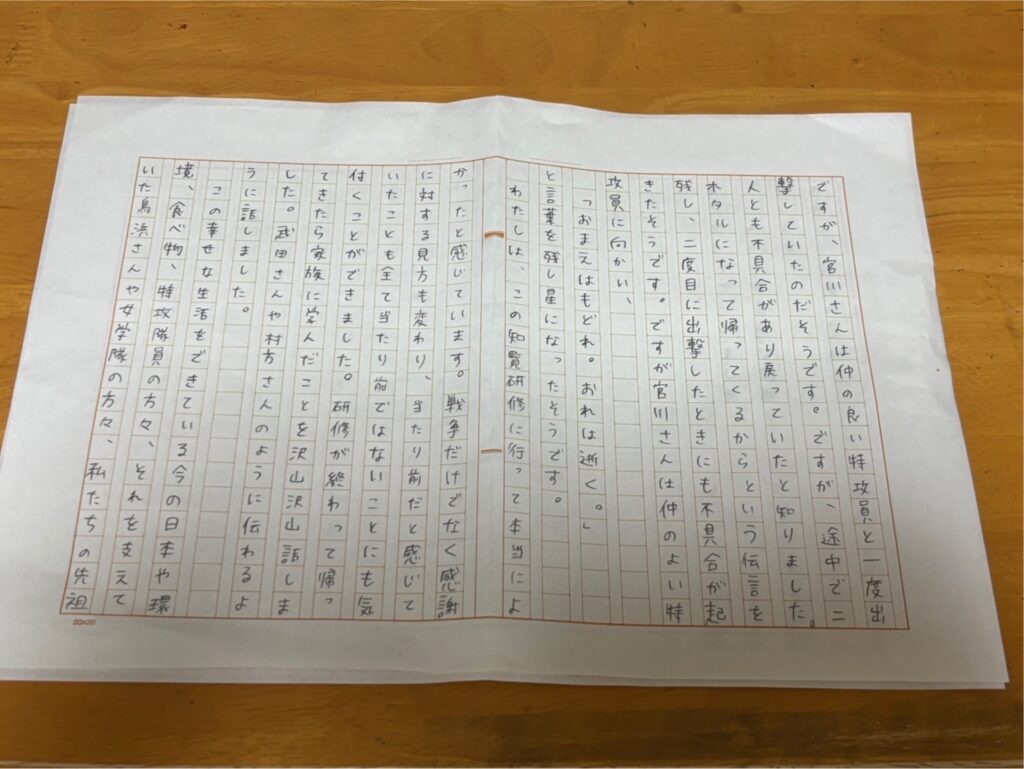 ですが、宮川さんは仲の良い特攻員と一度出
撃していたのだそうです。ですが、途中で二
人とも不具合があり戻っていたと知りました。
ホタルになって帰ってくるからという伝言を
残し、二度目に出撃したときにも不具合が起
きたそうです。ですが宮川さんは仲のよい特
攻員に向かい、
「おまえはもどれ。おれは逝く。」
と言葉を残し星になったそうです。
わたしは、この知覧研修に行って本当によ
かったと感じています。戦争だけでなく感謝
に対する見方も変わり、当たり前だと感じて
いたことも全て当たり前ではないことにも気
付くことができました。研修が終わって帰っ
てきたら家族に学んだことを沢山沢山話しま
した。武田さんや村方さんのように伝わるよ
うに話しました。
この幸せな生活をできている今の日本や環
境、食べ物、特攻隊員の方々、それを支えて
いた鳥浜さんや女学隊の方々、私たちの先祖
20×20